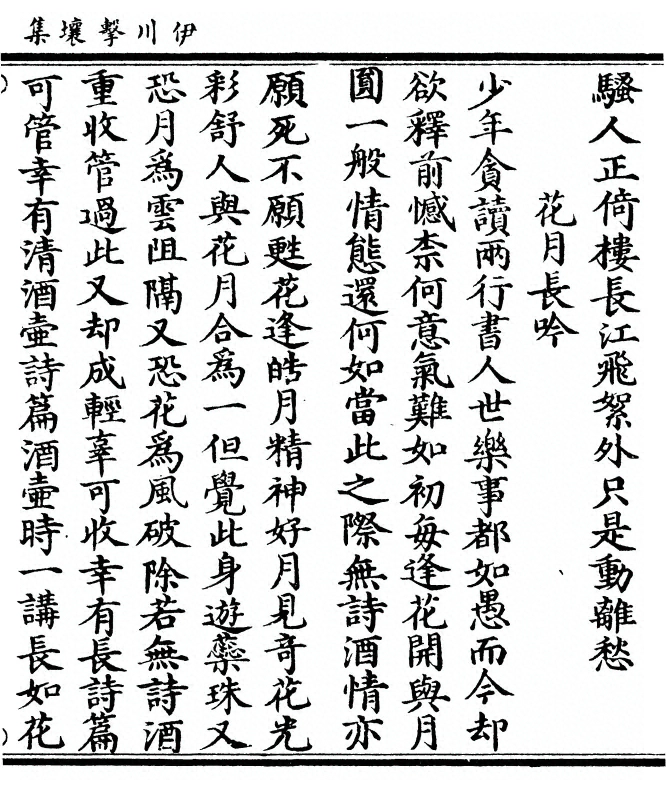 伊川擊壤集
騷人正倚樓長江飛絮外只是動離愁
花月長吟
少年貪讀兩行書人世樂事都如愚而今却
欲釋前憾柰何意氣難如初每逢花開與月
圓一般情態還何如當此之際無詩酒情亦
願死不願甦花逢皓月精神好月見奇花光
彩舒人與花月合爲一但覺此身遊蘂珠又
恐月爲雲阻隔又恐花爲風破除若無詩酒
重收管過此又却成輕辜可收幸有長詩篇
可管幸有清酒壷詩篇酒壷時一講長如花